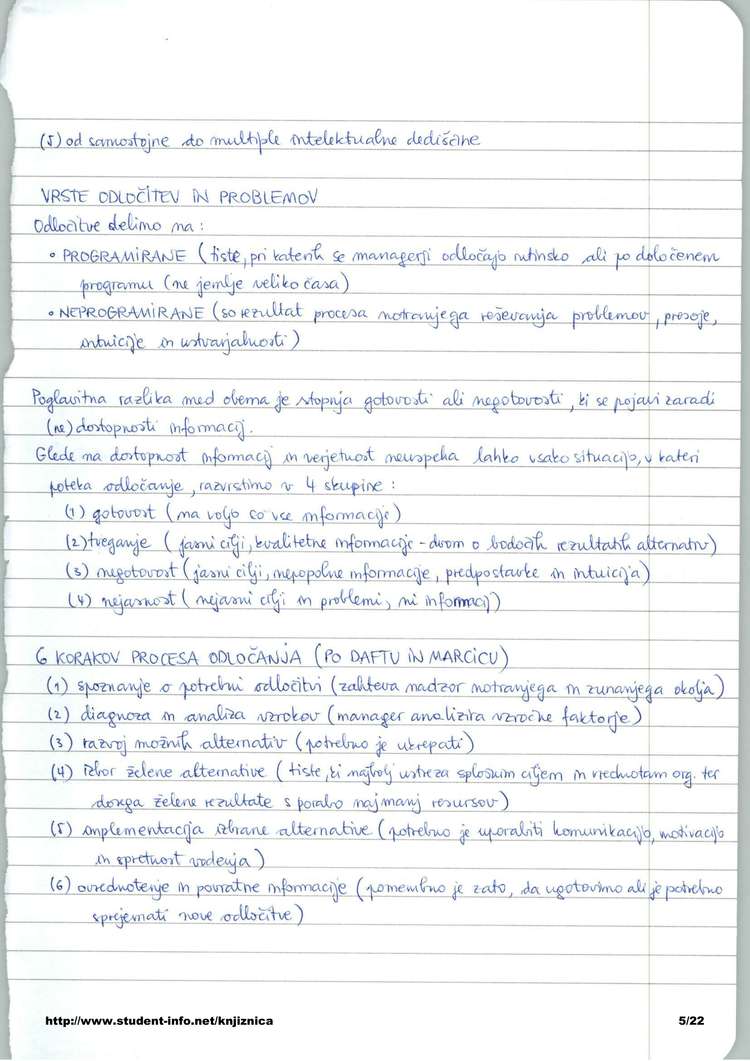 (5) od samostojne do multiple intelektualne dediščine
VRSTE ODLOČITEV IN PROBLEMOV
Odločitve delimo na:
• PROGRAMIRANE (tiste, pri katerih se managerji odločajo rutinsko ali po določenem
programu (ne jemlje veliko časa)
• NEPROGRAMIRANE (so rezultat procesa notranjega reševanja problemov, presoje,
intuicije in ustvarjalnosti)
Poglavitna razlika med obema je stopnja gotovosti ali negotovosti, ki se pojavi zaradi
(ne) dostopnosti informacij.
Glede na dostopnost informacij in verjetnost neuspeha lahko vsako situacijo, v kateri
poteka odločanje, razvrstimo v 4 skupine:
(1) gotovost (na voljo so vse informacije)
(2) tveganje (jasni cilji, kvalitetne informacije - dvom o bodočih rezultatih alternativ)
(3) negotovost (jasni cilji, nepopolne informacije, predpostavke in intuicija)
(4) nejasnost (nejasni cilji in problemi, ni informacij)
6 KORAKOV PROCESA ODLOČANJA (PO DAFTU IN MARCICU)
(1) spoznanje o potrebni odločitvi (zahteva nadzor notranjega in zunanjega okolja)
(2) diagnoza in analiza vzrokov (manager analizira vzročne faktorje)
(3) razvoj možnih alternativ (potrebno je ukrepati)
(4) izbor želene alternative (tiste, ki najbolj ustreza splošnim ciljem in vrednotam org. ter
dosega želene rezultate s porabo najmanj resursov)
(5) implementacija izbrane alternative (potrebno je uporabiti komunikacijo, motivacijo
in spretnost vodenja)
(6) ovrednotenje in povratne informacije (pomembno je zato, da ugotovimo ali je potrebno
sprejemati nove odločitve)
http://www.student-info.net/knjiznica 5/22